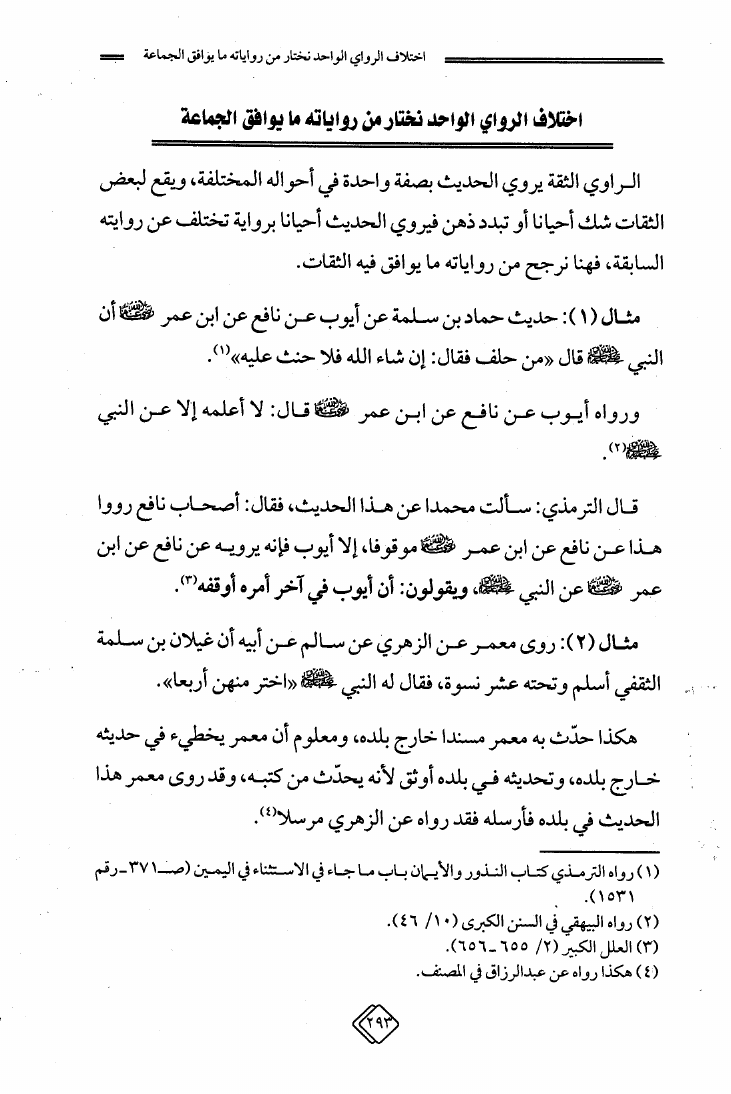 اختلاف الرواي الواحد نختار من رواياته ما يوافق الجماعة
اختلاف الرواي الواحد نختار من رواياته ما يوافق الجماعة
الراوي الثقة يروي الحديث بصفة واحدة في أحواله المختلفة، ويقع لبعض
الثقات شك أحيانا أو تبدد ذهن فيروي الحديث أحيانا برواية تختلف عن روايته
السابقة، فهنا نرجح من رواياته ما يوافق فيه الثقات.
مثال (١): حديث حماد بن سلمة عن أيوب عن نافع عن ابن عمر أن
النبي ﷺ قال «من حلف فقال: إن شاء الله فلا حنث عليه»(١).
ورواه أيوب عن نافع عن ابن عمر قال: لا أعلمه إلا عن النبي
ﷺ(٢).
قال الترمذي: سألت محمدا عن هذا الحديث، فقال: أصحاب نافع رووا
هذا عن نافع عن ابن عمر موقوفا، إلا أيوب فإنه يرويه عن نافع عن ابن
عمر عن النبي ﷺ، ويقولون: أن أيوب في آخر أمره أوقفه(٣).
مثال (٢): روى معمر عن الزهري عن سالم عن أبيه أن غيلان بن سلمة
الثقفي أسلم وتحته عشر نسوة، فقال له النبي ﷺ «اختر منهن أربعا».
هكذا حدّث به معمر مسندا خارج بلده، ومعلوم أن معمر يخطيء في حديثه
خارج بلده، وتحديثه في بلده أوثق لأنه يحدّث من كتبه، وقد روى معمر هذا
الحديث في بلده فأرسله فقد رواه عن الزهري مرسلا(٤).
(١) رواه الترمذي كتاب النذور والأيمان باب ما جاء في الاستثناء في اليمين (صـ٣٧١ـ رقم
١٥٣١).
(٢) رواه البيهقي في السنن الكبرى (١٠/ ٤٦).
(٣) العلل الكبير (٢/ ٦٥٥ ـ ٦٥٦).
(٤) هكذا رواه عن عبدالرزاق في المصنف.
٢٩٣